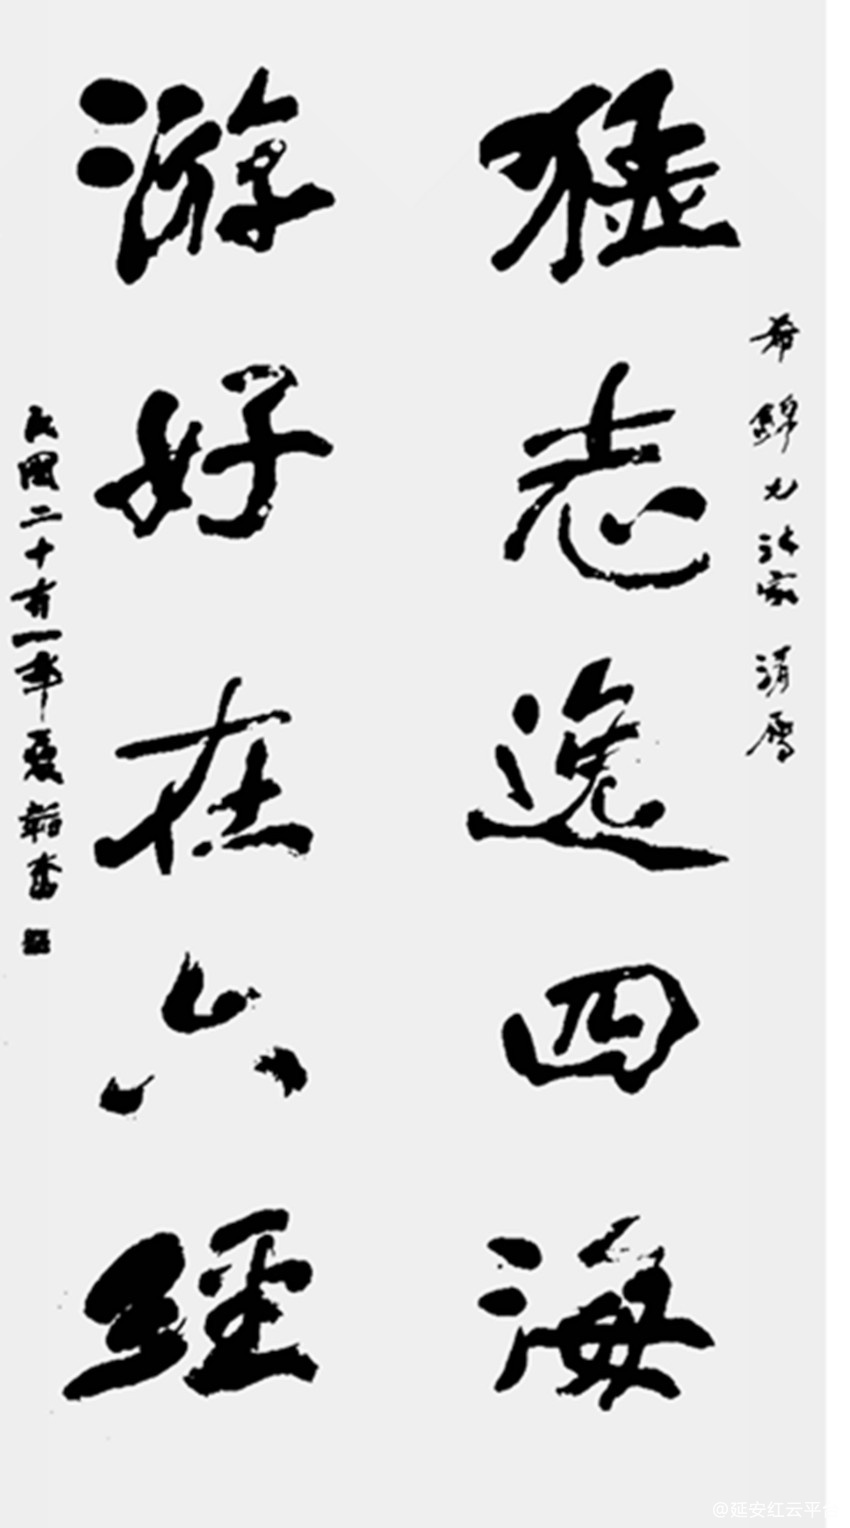 希錦法家清
猛志逸四海
游好在六經
民國二十有一年夏韜奮
@延安红云平